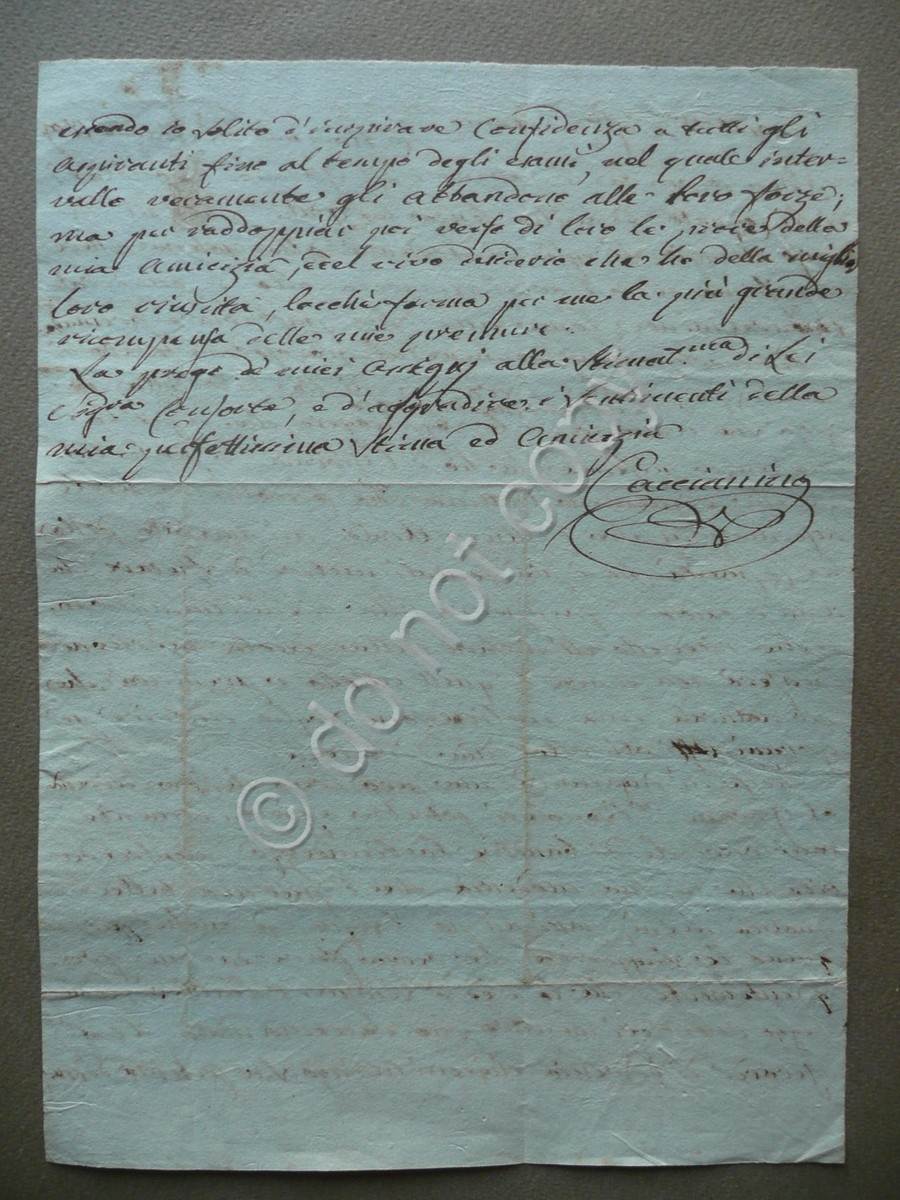 essendo io solito d'inspirare Confidenza a tutti gli
aspiranti fino al tempo degli esami, nel quale inter-
vallo veramente gli abbandono alle loro forze;
ma per raddoppiar poi verso di loro le prove della
mia amicizia, e del vivo desiderio che ho della miglior
loro riuscita, locchè forma per me la più grande
ricompensa delle mie premure.
La prego de' miei ossequj alla Stimat.ma di Lei
Sigra Consorte, e d'aggradire i sentimenti della
mia perfettissima stima ed amicizia
Caccianino
© do not copy